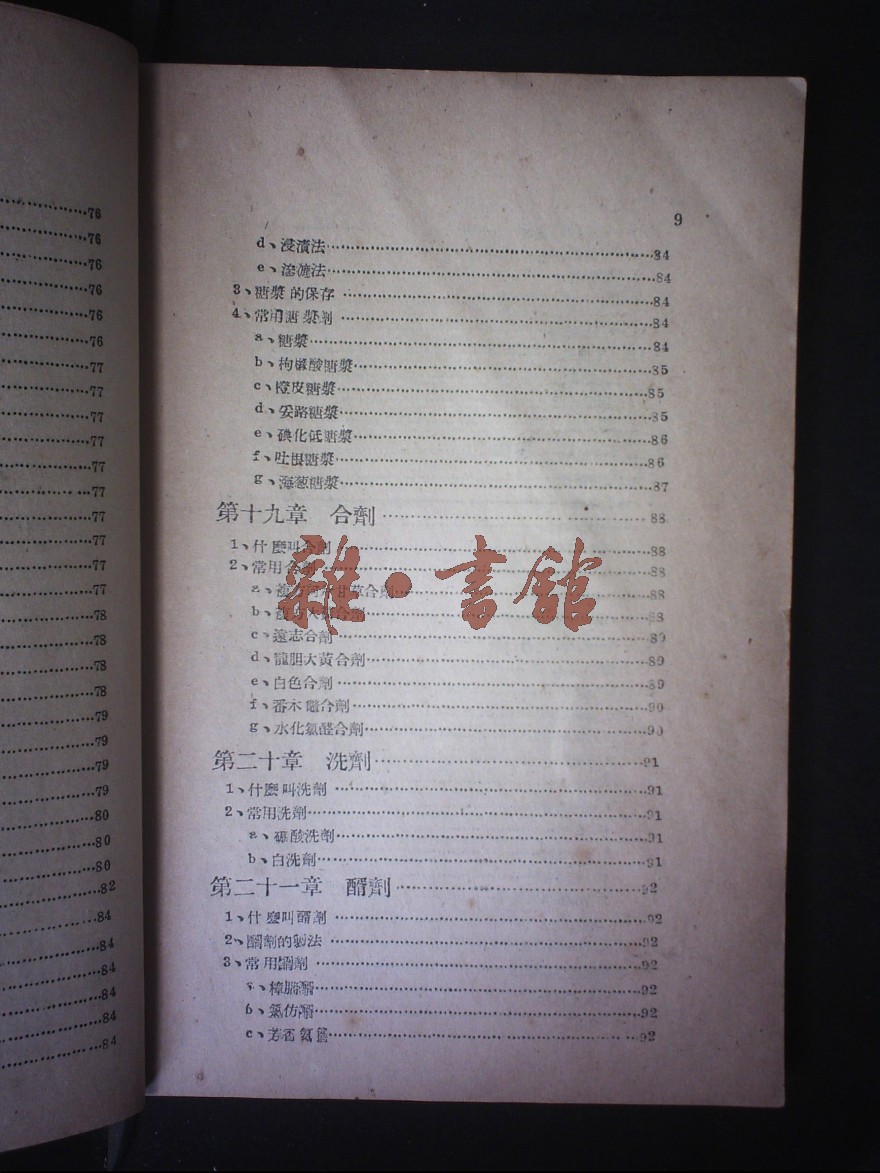 76
76
76
76
76
76
77
77
77
77
77
77
77
77
77
77
78
78
78
78
79
79
79
79
80
80
80
82
84
84
84
84
84
84
9
d、浸漬法 84
e、滲漉法 84
3、糖漿的保存 84
4、常用糖漿劑 84
a、糖漿 84
b、枸櫞酸糖漿 85
c、橙皮糖漿 85
d、妥路糖漿 85
e、碘化低糖漿 86
f、吐根糖漿 86
g、海葱糖漿 87
第十九章 合劑 88
1、什麼叫合劑 88
2、常用合劑 88
a、複方 甘草合劑 88
b、複方大 合劑 88
c、遠志合劑 89
d、龍胆大黃合劑 89
e、白色合劑 89
f、番木鼈合劑 90
g、水化氯醛合劑 90
雜·書館
第二十章 洗劑 91
1、什麼叫洗劑 91
2、常用洗劑 91
a、硼酸洗劑 91
b、白洗劑 91
第二十一章 醑劑 92
1、什麼叫醑劑 92
2、醑劑的製法 92
3、常用醑劑 92
a、樟腦醑 92
b、氯仿醑 92
c、芳香氨醑 92